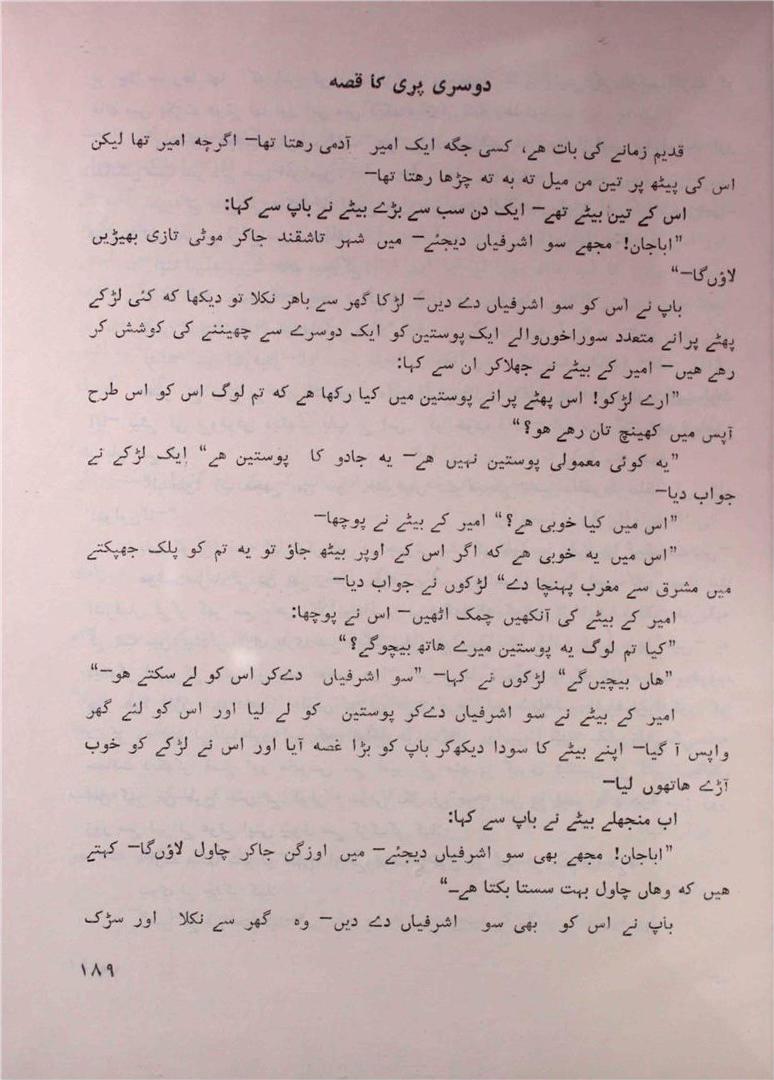 دوسری پری کا قصہ
قدیم زمانے کی بات ھے، کسی جگہ ایک امیر آدمی رھتا تھا— اگرچہ امیر تھا لیکن
اس کی پیٹھ پر تین من میل تہ بہ تہ چڑھا رھتا تھا—
اس کے تین بیٹے تھے— ایک دن سب سے بڑے بیٹے نے باپ سے کہا:
”اباجان! مجھے سو اشرفیاں دیجئے— میں شہر تاشقند جاکر موٹی تازی بھیڑیں
لاؤں‌گا—“
باپ نے اس کو سو اشرفیاں دے دیں— لڑکا گھر سے باھر نکلا تو دیکھا کہ کئی لڑکے
پھٹے پرانے متعدد سوراخوں‌والے ایک پوستین کو ایک دوسرے سے چھیننے کی کوشش کر
رھے ھیں— امیر کے بیٹے نے جھلاکر ان سے کہا:
”ارے لڑکو! اس پھٹے پرانے پوستین میں کیا رکھا ھے کہ تم لوگ اس کو اس طرح
آپس میں کھینچ تان رھے ھو؟“
”یہ کوئی معمولی پوستین نہیں ھے— یہ جادو کا پوستین ھے“ ایک لڑکے نے
جواب دیا—
”اس میں کیا خوبی ھے؟“ امیر کے بیٹے نے پوچھا—
”اس میں یہ خوبی ھے کہ اگر اس کے اوپر بیٹھ جاؤ تو یہ تم کو پلک جھپکتے
میں مشرق سے مغرب پہنچا دے“ لڑکوں نے جواب دیا—
امیر کے بیٹے کی آنکھیں چمک اٹھیں— اس نے پوچھا:
”کیا تم لوگ یہ پوستین میرے ھاتھ بیچوگے؟“
”ھاں بیچیں‌گے“ لڑکوں نے کہا— ”سو اشرفیاں دےکر اس کو لے سکتے ھو—“
امیر کے بیٹے نے سو اشرفیاں دےکر پوستین کو لے لیا اور اس کو لئے گھر
واپس آ گیا— اپنے بیٹے کا سودا دیکھ‌کر باپ کو بڑا غصہ آیا اور اس نے لڑکے کو خوب
آڑے ھاتھوں لیا—
اب منجھلے بیٹے نے باپ سے کہا:
”اباجان! مجھے بھی سو اشرفیاں دیجئے— میں اوزگن جاکر چاول لاؤں‌گا— کہتے
ھیں کہ وھاں چاول بہت سستا بکتا ھے—“
باپ نے اس کو بھی سو اشرفیاں دے دیں— وہ گھر سے نکلا اور سڑک
۱۸۹